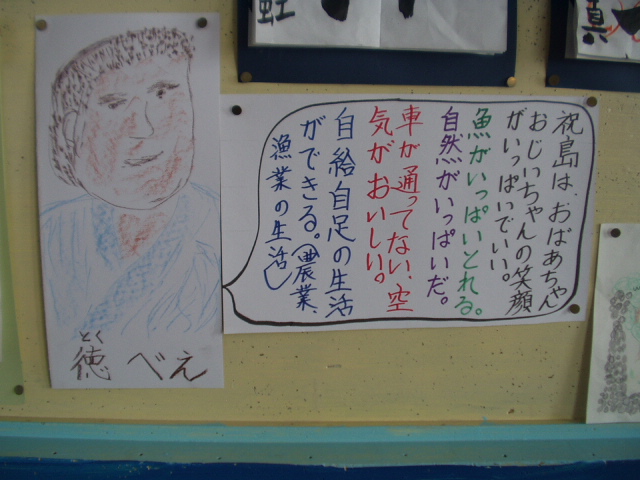 祝島は、おばあちゃん
おじいちゃんの笑顔
がいっぱいでいい。
魚がいっぱいとれる。
自然がいっぱいだ。
車が通ってない、空
気がおいしい。
自給自足の生活
ができる。(農業、
漁業の生活)
とく
徳べえ
真